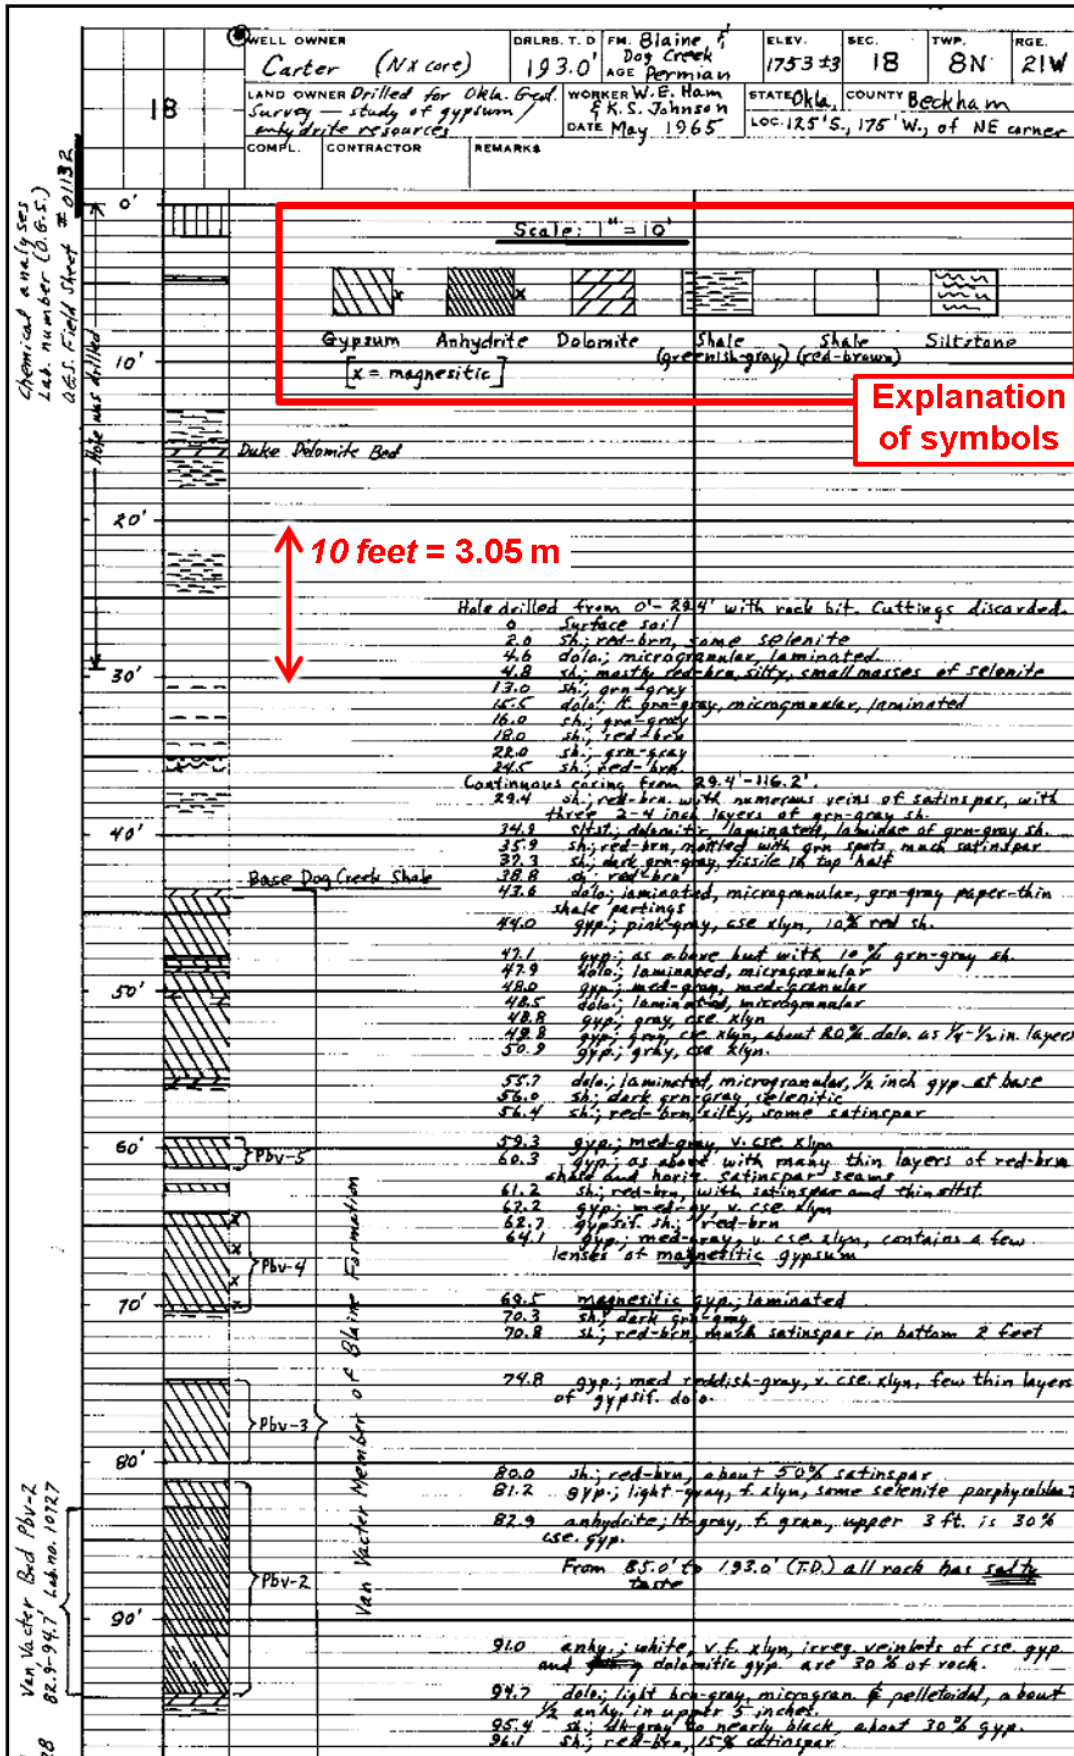 WELL OWNER
Carter (Nx core)
DRLRS. T. D
193.0'
FM. Blaine &
Dog Creek
AGE Permian
ELEV.
1753 ±3
SEC.
18
TWP.
8N
RGE.
21W
18
LAND OWNER Drilled for Okla. Geol.
Survey — study of gypsum/
anhydrite resources
WORKER W.E. Ham
& K.S. Johnson
DATE May 1965
STATE Okla.
COUNTY Beckham
LOC. 125'S., 175'W., of NE corner
COMPL.
CONTRACTOR
REMARKS
Chemical analyses
Lab. number (O.G.S.)
O.G.S. Field Sheet # 01132
Hole was drilled
0'
10'
20'
30'
40'
50'
60'
70'
80'
90'
Scale: 1" = 10'
x
x
Gypsum Anhydrite Dolomite Shale Shale Siltstone
(greenish-gray) (red-brown)
[x = magnesitic]
Explanation
of symbols
Duke Dolomite Bed
10 feet = 3.05 m
Hole drilled from 0'-29.4' with rock bit. Cuttings discarded.
0 Surface soil
2.0 sh.; red-brn, some selenite
4.6 dolo.; microgranular, laminated
4.8 sh.; mostly red-brn, silty, small masses of selenite
13.0 sh.; grn-gray
15.5 dolo.; lt. grn-gray, microgranular, laminated
16.0 sh.; grn-gray
18.0 sh.; red-brn
22.0 sh.; grn-gray
24.5 sh.; red-brn
Continuous coring from 29.4'-116.2'.
29.4 sh.; red-brn. with numerous veins of satinspar, with
three 2-4 inch layers of grn-gray sh.
34.9 sltst.; dolomitic, laminated, laminae of grn-gray sh.
35.9 sh.; red-brn, mottled with grn spots, much satinspar
37.3 sh.; dark grn-gray, fissile in top half
38.8 sh.; red-brn
Base Dog Creek Shale
43.6 dolo.; laminated, microgranular, grn-gray paper-thin
shale partings
44.0 gyp.; pink-gray, cse xlyn, 10% red sh.
47.1 gyp.; as above but with 10% grn-gray sh.
47.9 dolo.; laminated, microgranular
48.0 gyp.; med-gray, med-granular
48.5 dolo.; laminated, microgranular
48.8 gyp.; gray, cse. xlyn
49.8 gyp.; gray, cse xlyn, about 20% dolo. as 1/4-1/2 in. layers
50.9 gyp.; gray, cse xlyn.
55.7 dolo.; laminated, microgranular, 1/2 inch gyp. at base
56.0 sh.; dark grn-gray, selenitic
56.4 sh.; red-brn, silty, some satinspar
59.3 gyp.; med-gray, v. cse xlyn
60.3 gyp.; as above with many thin layers of red-brn
shale and horiz. satinspar seams
61.2 sh.; red-brn, with satinspar and thin sltst.
62.2 gyp.; med-gy, v. cse xlyn
62.7 gypsif. sh.; red-brn
64.1 gyp.; med-gray, v. cse xlyn, contains a few
lenses of magnesitic gypsum
69.5 magnesitic gyp.; laminated
70.3 sh.; dark grn-gray
70.8 sh.; red-brn, much satinspar in bottom 2 feet
74.8 gyp.; med reddish-gray, v. cse. xlyn, few thin layers
of gypsif. dolo.
80.0 sh.; red-brn, about 50% satinspar
81.2 gyp.; light-gray, f. xlyn, some selenite
82.9 anhydrite; lt-gray, f. gran., upper 3 ft. is 30%
cse. gyp.
From 85.0' to 193.0' (T.D.) all rock has salty
taste
91.0 anhy.; white, v.f. xlyn, irreg. veinlets of cse. gyp
and dolomitic gyp. are 30% of rock.
94.7 dolo.; light brn-gray, microgran. & pelletoidal, about
1/2 anhy. in upper 5 inches.
95.4 sh.; dk-gray to nearly black, about 30% gyp.
96.1 sh.; red-brn, 15% satinspar
Pbv-5
Pbv-4
Pbv-3
Pbv-2
x
x
x
x
Van Vacter Member of Blaine Formation
Van Vacter Bed Pbv-2
82.9-94.7' Lab. no. 10727
28